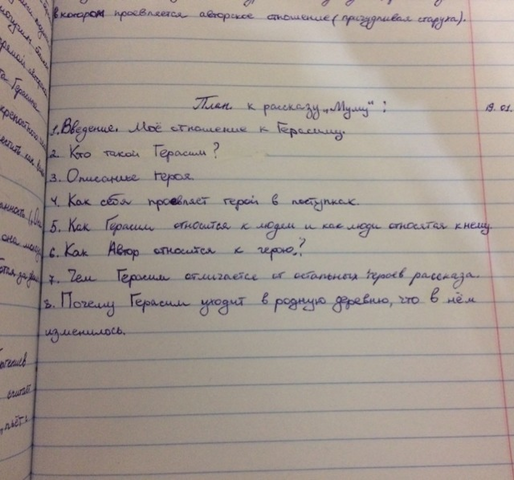 в котором проевляется авторское отношение (причудливая старуха).
План к рассказу „Муму“:
19.01.
1. Введение. Моё отношение к Герасиму.
2. Кто такой Герасим?
3. Описанье героя.
4. Как себя проевляет герой в поступках.
5. Как Герасим относится к людем и как люди относятся к нему.
6. Как Автор относится к герою?
7. Чем Герасим отличается от остальных героев рассказа.
8. Почему Герасим уходит в родную деревню, что в нём
изменилось.